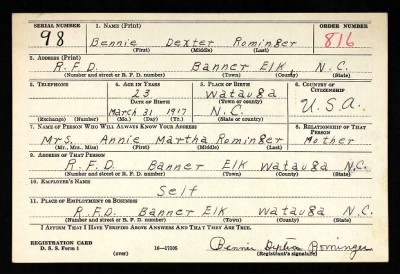 SERIAL NUMBER 1. NAME (Print) ORDER NUMBER
98 Bennie Dexter Rominger 816
(First) (Middle) (Last)
2. ADDRESS (Print)
R.F.D. Banner Elk N.C.
(Number and street or R. F. D. number) (Town) (County) (State)
3. TELEPHONE 4. AGE IN YEARS 5. PLACE OF BIRTH 6. COUNTRY OF CITIZENSHIP
23 Watauga
DATE OF BIRTH (Town or county)
March 31 1917 N.C. U.S.A.
(Exchange) (Number) (Mo.) (Day) (Yr.) (State or country)
7. NAME OF PERSON WHO WILL ALWAYS KNOW YOUR ADDRESS 8. RELATIONSHIP OF THAT PERSON
Mrs. Annie Martha Rominger Mother
(Mr., Mrs., Miss) (First) (Middle) (Last)
9. ADDRESS OF THAT PERSON
R.F.D. Banner Elk Watauga N.C.
(Number and street or R. F. D. number) (Town) (County) (State)
10. EMPLOYER'S NAME
Self
11. PLACE OF EMPLOYMENT OR BUSINESS
R.F.D. Banner Elk Watauga N.C.
(Number and street or R. F. D. number) (Town) (County) (State)
I AFFIRM THAT I HAVE VERIFIED ABOVE ANSWERS AND THAT THEY ARE TRUE.
REGISTRATION CARD
D. S. S. Form 1 16—17105 Bennie Rominger
(over) (Registrant's signature)